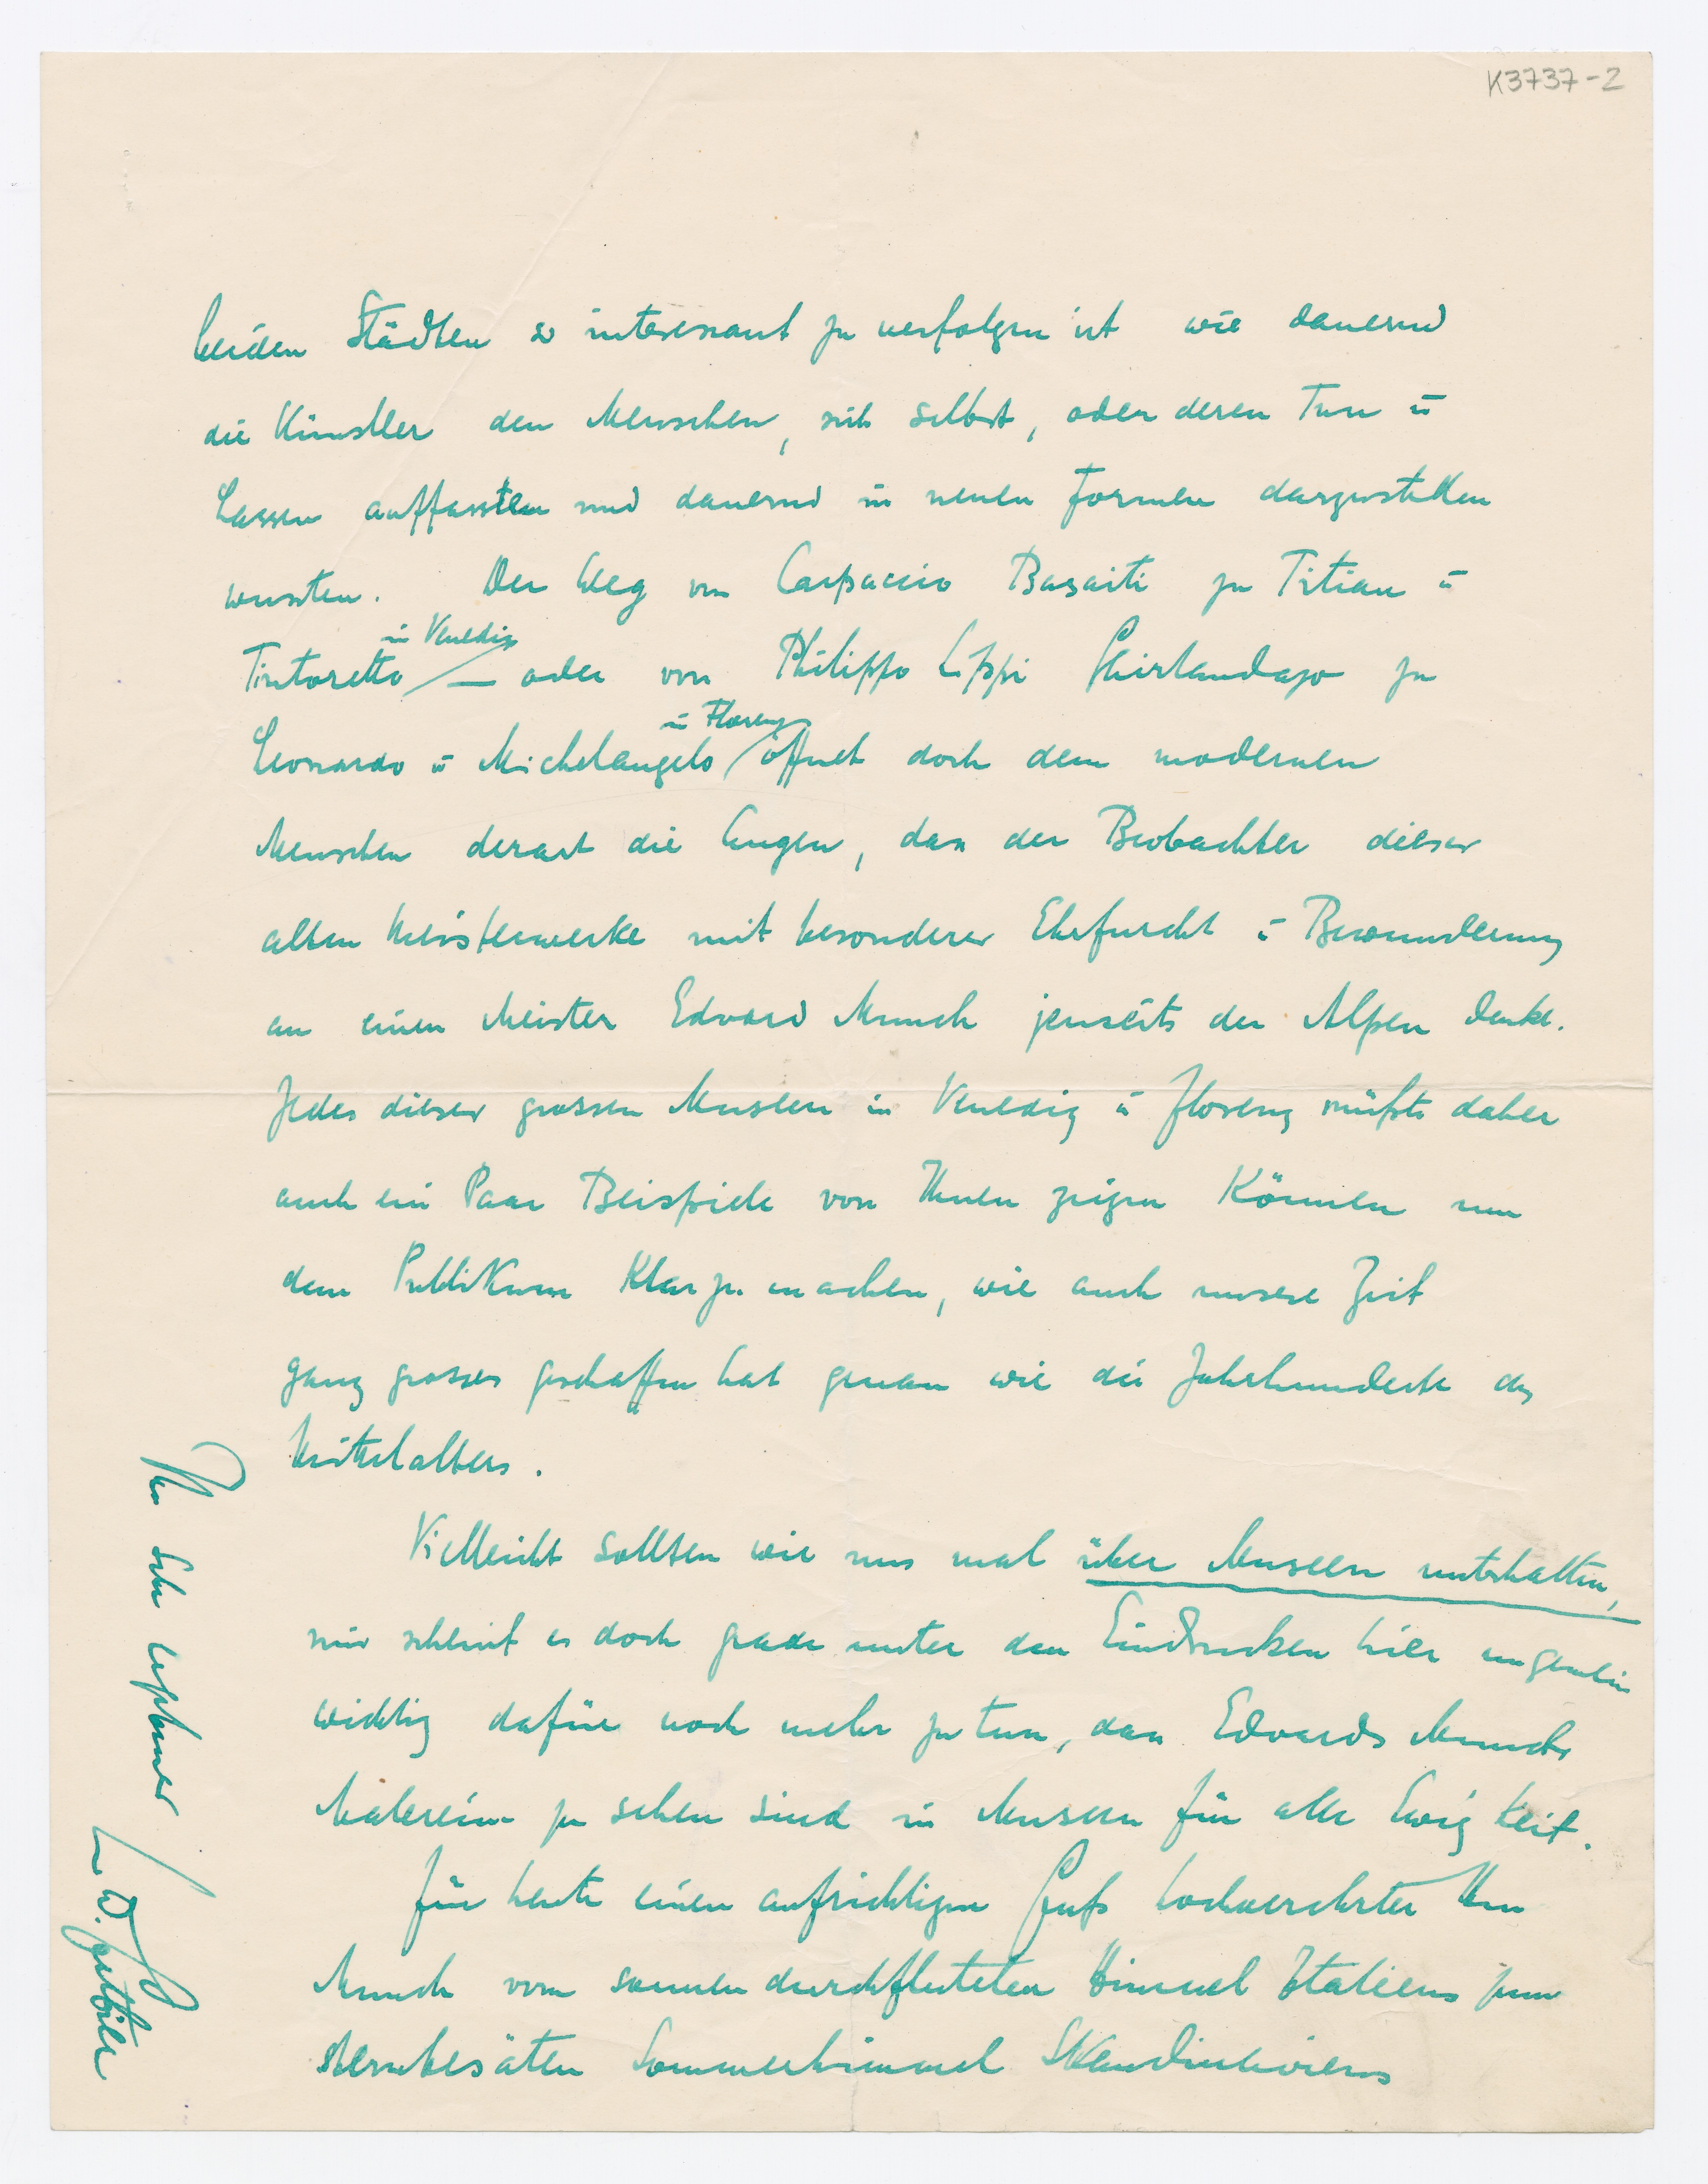 K3737-2
beiden Städten so interessant zu verfolgen ist wie dauernd
die Künstler den Menschen, sich selbst, oder deren Tun u
Lassen auffassten und dauernd in neuen Formen darzustellen
wussten. Der Weg von Carpaccio Basaiti zu Titian u
in Venedig
Tintoretto — oder von Philippo Lippi Ghirlandajo zu
in Florenz
Leonardo u Michelangelo öffnet doch dem modernen
Menschen derart die Augen, dass der Beobachter dieser
alten Meisterwerke mit besonderer Ehrfurcht u Bewunderung
an einen Meister Edvard Munch jenseits der Alpen denkt.
Jedes dieser grossen Museen in Venedig u Florenz müßte daher
auch ein Paar Beispiele von Ihnen zeigen Können um
dem Publikum Klar zu machen, wie auch unsere Zeit
ganz grosses geschaffen hat genau wie die Jahrhunderte des
Mittelalters.
Vielleicht sollten wir uns mal über Museen unterhalten,
mir scheint es doch grade unter den Eindrucken hier ungemein
wichtig dafür noch mehr zu tun, dass Edvards Munchs
Malereien zu sehen sind in Museen für alle Ewigkeit.
Für heute einen aufrichtigen Gruß hochverehrter Herr
Munch vom sonnendurchfluteten Himmel Italiens zum
sternbesäten Sommerhimmel Skandinaviens
Ihr sehr ergebener